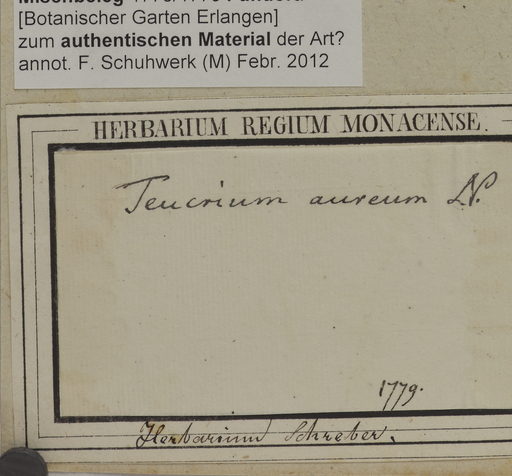 [Botanischer Garten Erlangen]
zum authentischen Material der Art?
annot. F. Schuhwerk (M) Febr. 2012
HERBARIUM REGIUM MONACENSE.
Teucrium aureum
1779.
Herbarium Schreber.